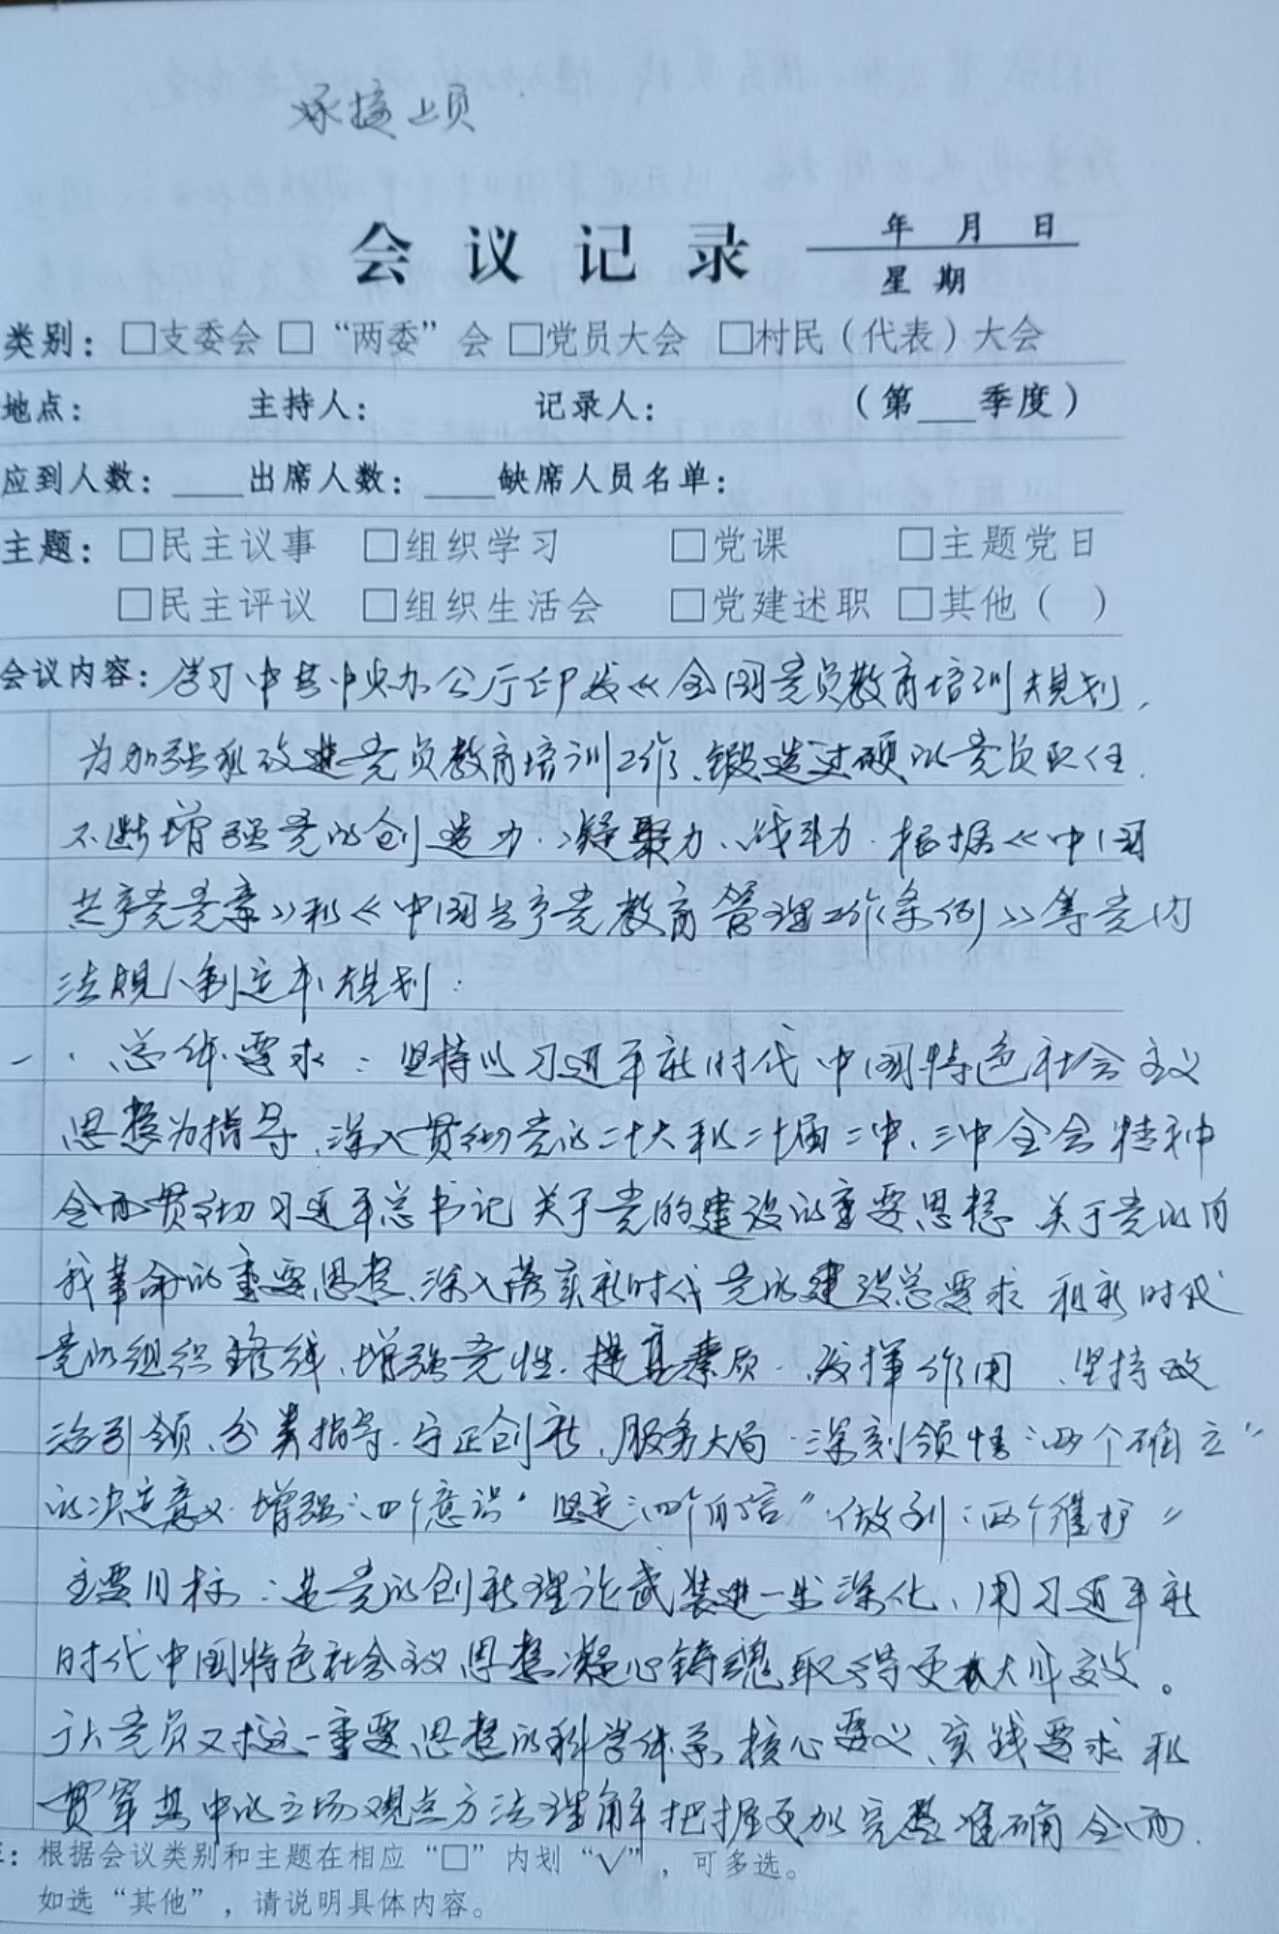 承接上页
会议记录
年 月 日
星期
类别：□支委会 □“两委”会 □党员大会 □村民（代表）大会
地点： 主持人： 记录人： （第___季度）
应到人数：___出席人数：___缺席人员名单：
主题：□民主议事 □组织学习 □党课 □主题党日
□民主评议 □组织生活会 □党建述职 □其他（ ）
会议内容：学习中共中央办公厅印发《全国党员教育培训规划，
为加强和改进党员教育培训工作、锻造过硬的党员队伍.
不断增强党的创造力、凝聚力、战斗力.根据《中国
共产党党章》和《中国共产党教育管理工作条例》等党内
法规、制定本规划：
一、总体要求：坚持以习近平新时代中国特色社会主义
思想为指导、深入贯彻党的二十大和二十届二中、三中全会精神
全面贯彻习近平总书记关于党的建设的重要思想 关于党的自
我革命的重要思想、深入落实新时代党的建设总要求 和新时代
党的组织路线、增强党性、提高素质、发挥作用、坚持政
治引领、分类指导、守正创新、服务大局.深刻领悟“两个确立”
的决定意义.增强“四个意识”坚定“四个自信”做到“两个维护”
主要目标：是党的创新理论武装进一步深化、用习近平新
时代中国特色社会主义思想凝心铸魂取得更大成效。
广大党员对这一重要思想的科学体系 核心要义、实践要求 和
贯穿其中的立场观点方法理解把握更加完整准确全面.
注：根据会议类别和主题在相应“□”内划“√”，可多选。
如选“其他”，请说明具体内容。